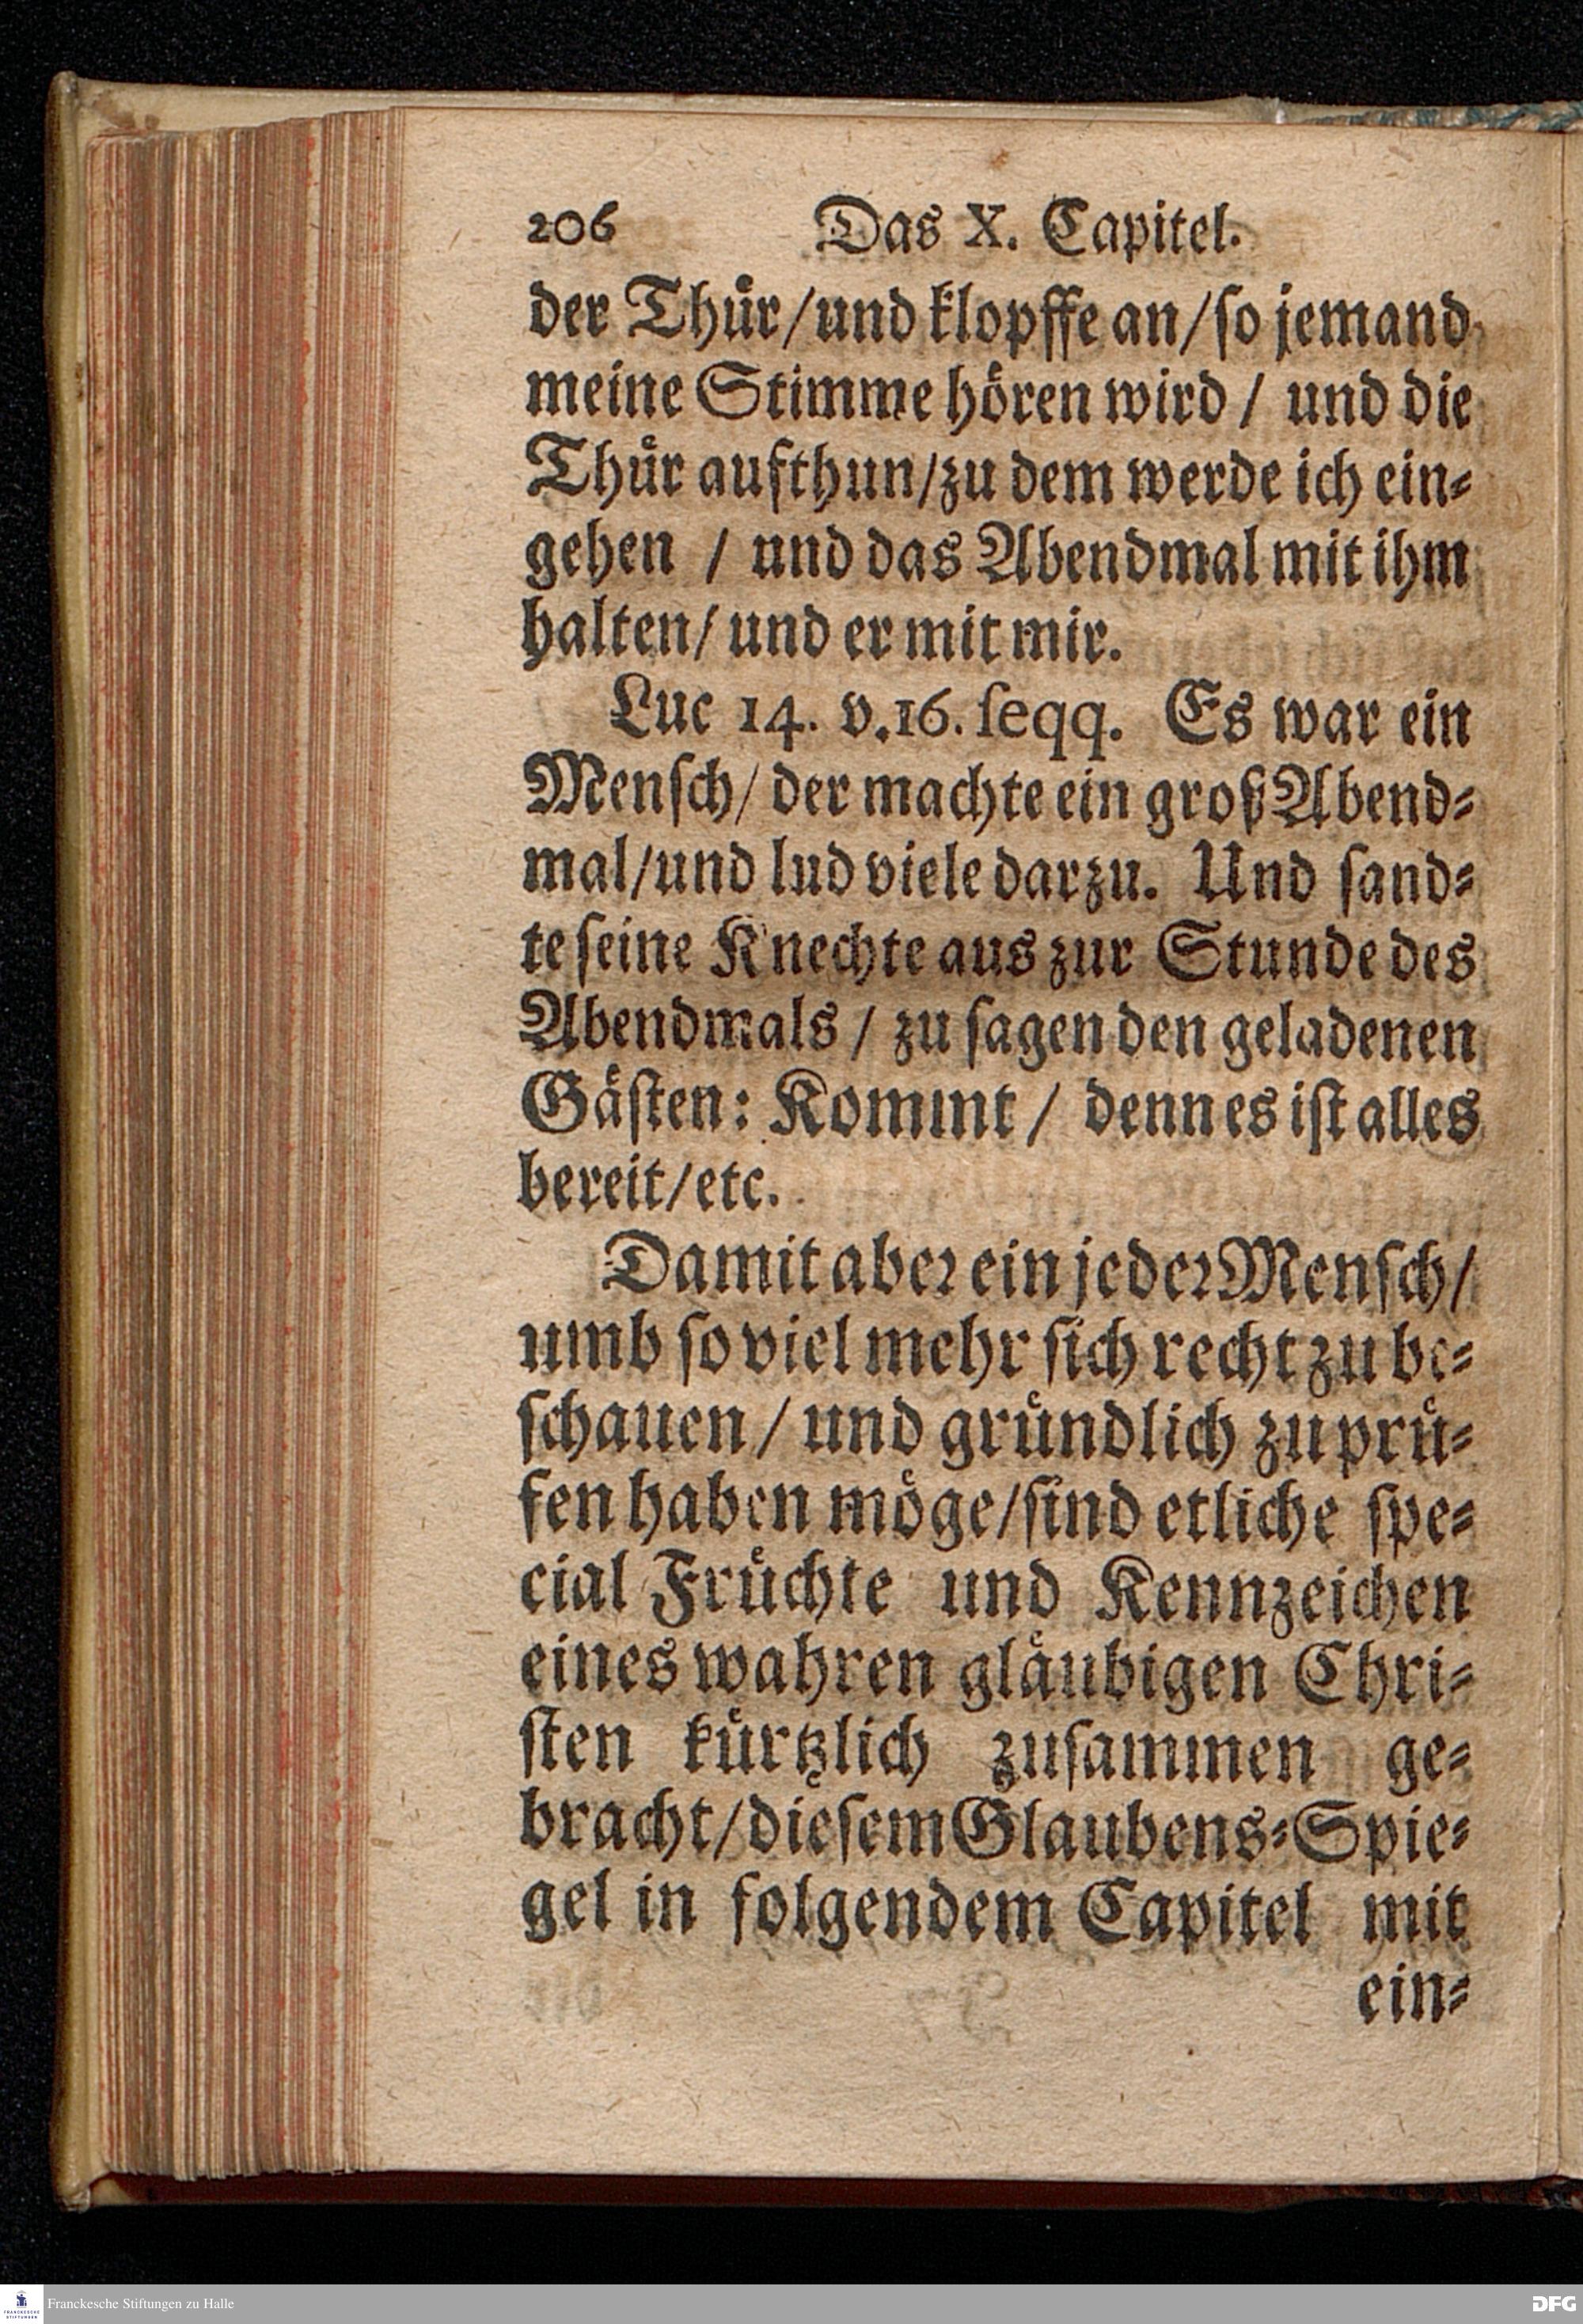 206 Das X. Capitel.
der Thür/und klopffe an/so jemand
meine Stimme hören wird / und die
Thür aufthun/zu dem werde ich ein⸗
gehen / und das Abendmal mit ihm
halten/ und er mit mir.
Luc 14. v.16. seqq. Es war ein
Mensch/ der machte ein groß Abend⸗
mal/und lud viele darzu. Und sand⸗
te seine Knechte aus zur Stunde des
Abendmals / zu sagen den geladenen
Gästen: Kommt / denn es ist alles
bereit/etc.
Damit aber ein jeder Mensch/
umb so viel mehr sich recht zu be⸗
schauen / und gründlich zu prü⸗
fen haben möge/sind etliche spe⸗
cial Früchte und Kennzeichen
eines wahren gläubigen Chri⸗
sten kürtzlich zusammen ge⸗
bracht/diesem Glaubens⸗Spie⸗
gel in folgendem Capitel mit
ein⸗
FRANCKESCHE STIFTUNGEN
Franckesche Stiftungen zu Halle
DFG